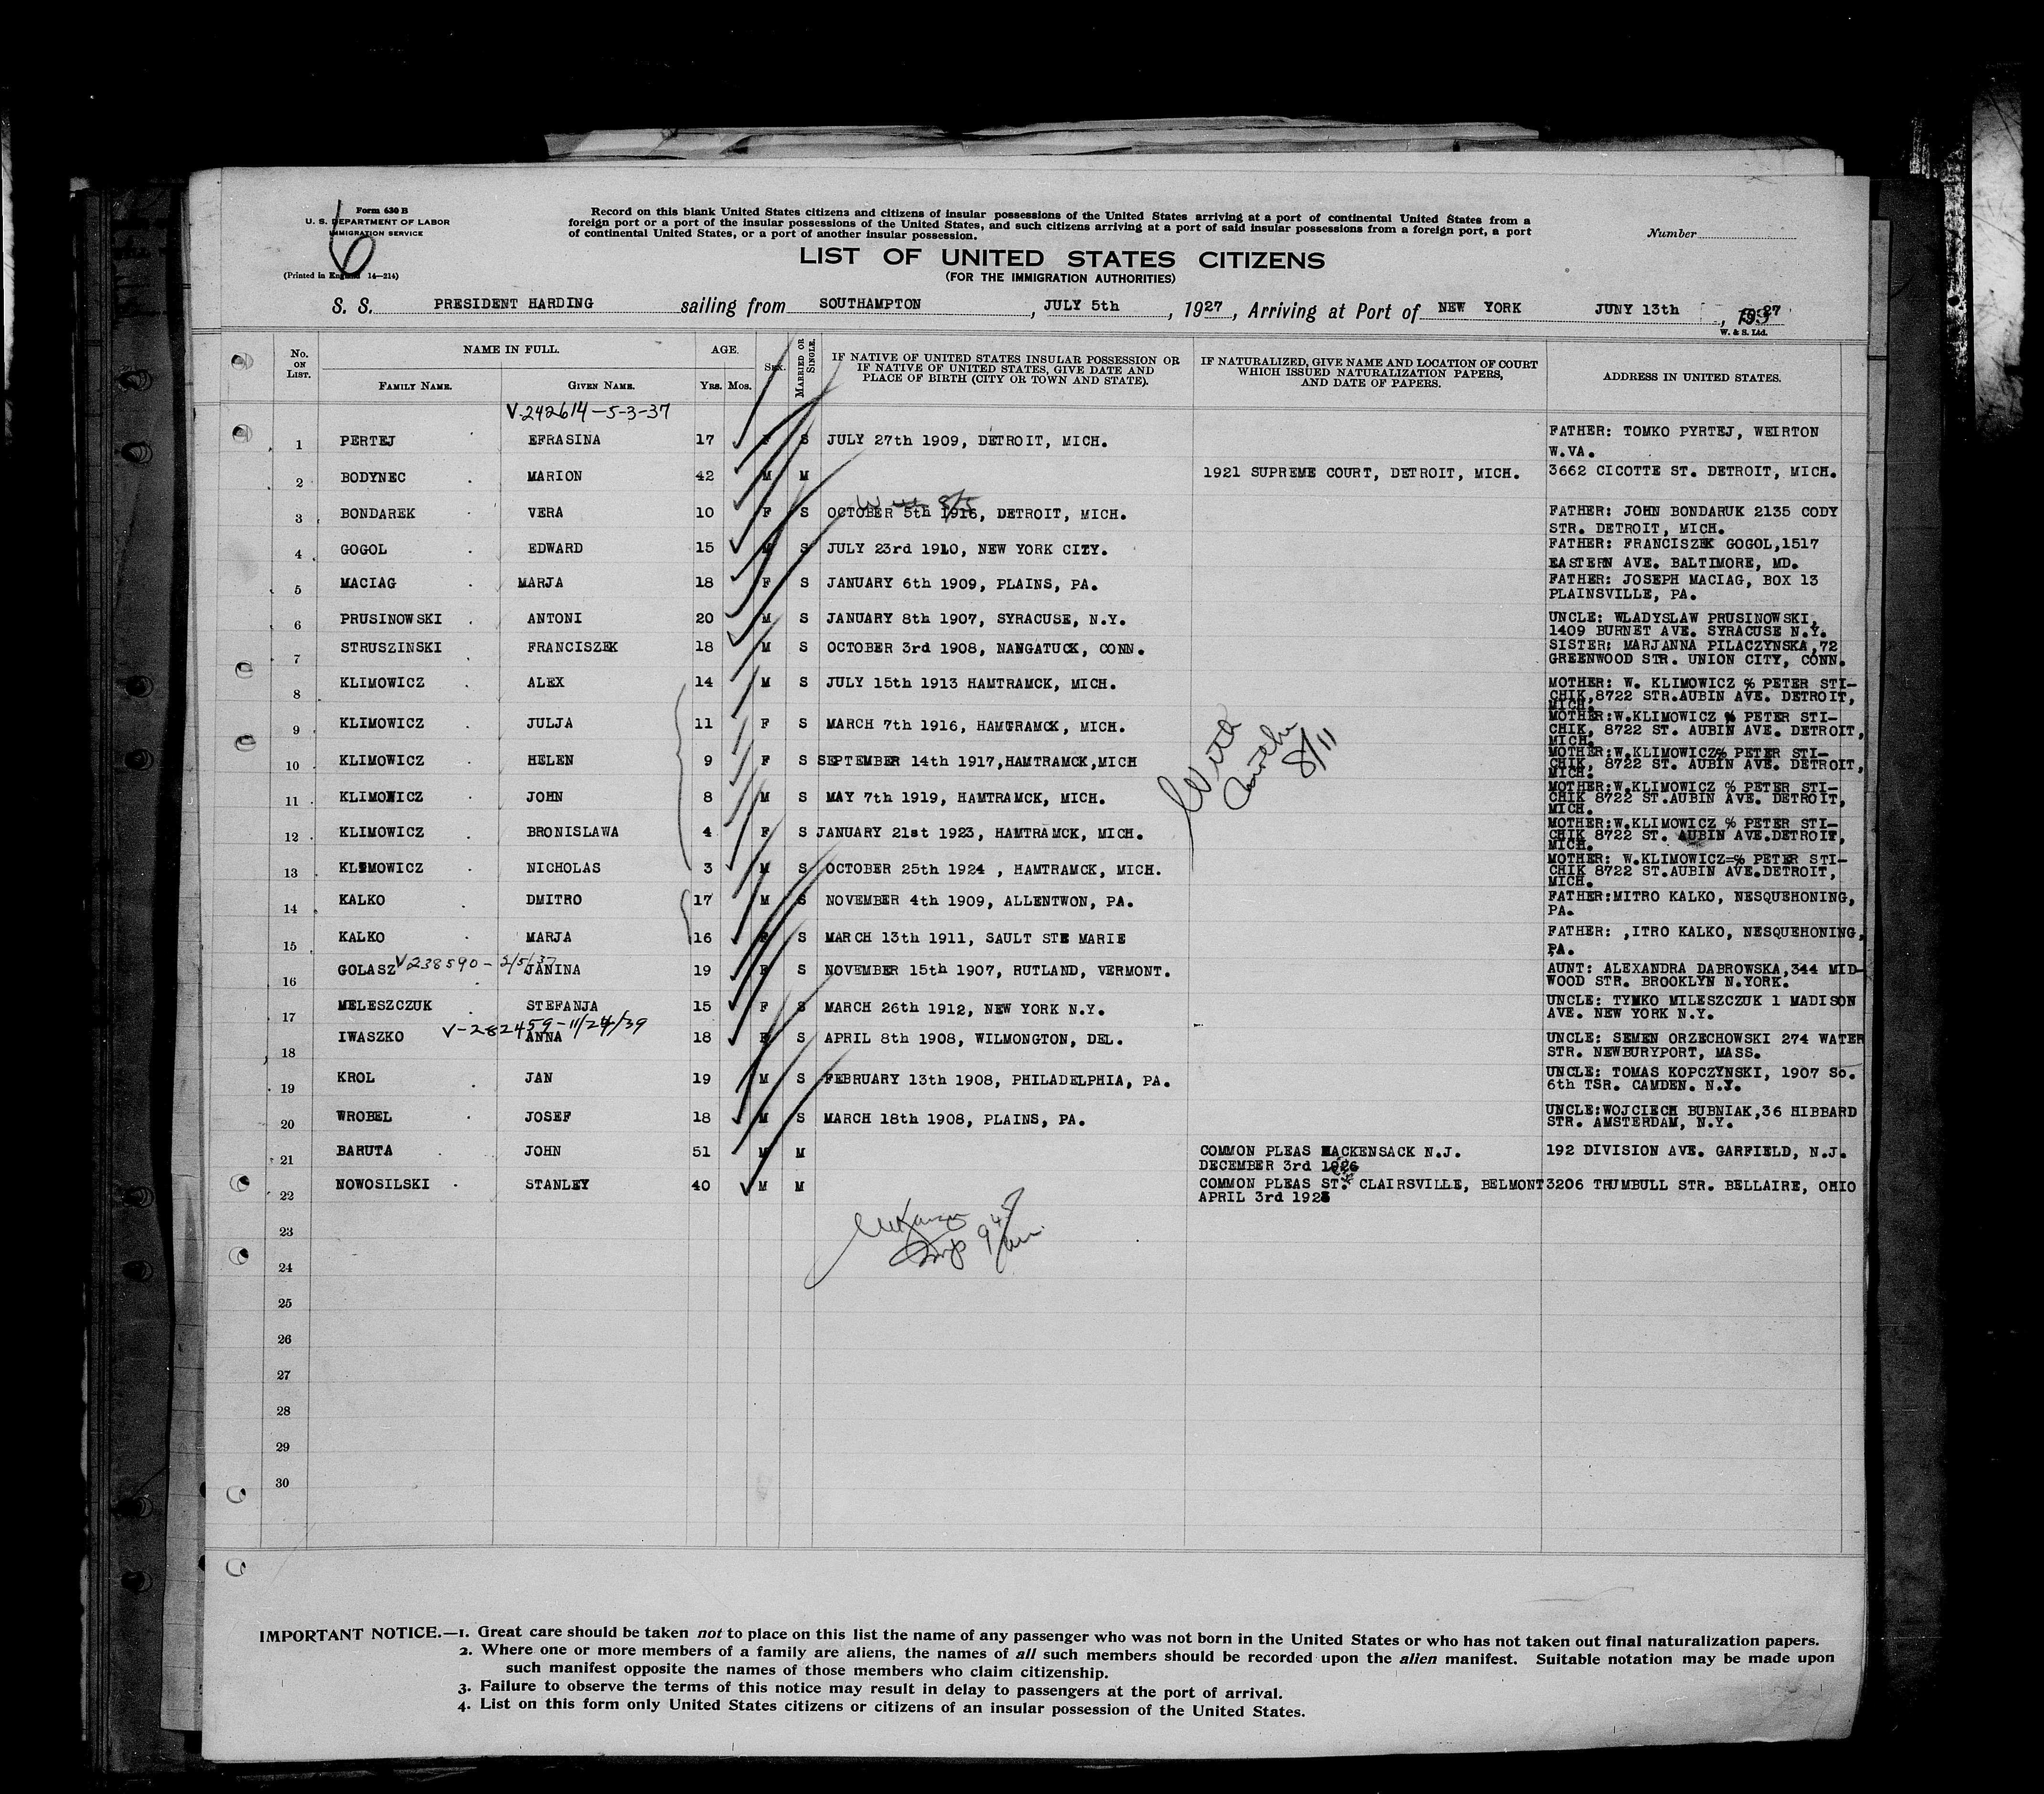 Form 630 B
U. S. DEPARTMENT OF LABOR
IMMIGRATION SERVICE
(Printed in England 14—214)
6
Record on this blank United States citizens and citizens of insular possessions of the United States arriving at a port of continental United States from a
foreign port or a port of the insular possessions of the United States, and such citizens arriving at a port of said insular possessions from a foreign port, a port
of continental United States, or a port of another insular possession.
Number
LIST OF UNITED STATES CITIZENS
(FOR THE IMMIGRATION AUTHORITIES)
S. S. PRESIDENT HARDING sailing from SOUTHAMPTON, JULY 5th, 1927, Arriving at Port of NEW YORK JUNY 13th, 1927
W. & S. Ltd.
No. ON LIST. NAME IN FULL. FAMILY NAME. GIVEN NAME. AGE. YRS. MOS. SEX. MARRIED OR SINGLE. IF NATIVE OF UNITED STATES INSULAR POSSESSION OR IF NATIVE OF UNITED STATES, GIVE DATE AND PLACE OF BIRTH (CITY OR TOWN AND STATE). IF NATURALIZED, GIVE NAME AND LOCATION OF COURT WHICH ISSUED NATURALIZATION PAPERS, AND DATE OF PAPERS. ADDRESS IN UNITED STATES.
V-242614-5-3-37
1 PERTEJ EFRASINA 17 F S JULY 27th 1909, DETROIT, MICH. FATHER: TOMKO PYRTEJ, WEIRTON
W.VA.
2 BODYNEC MARION 42 M M 1921 SUPREME COURT, DETROIT, MICH. 3662 CICOTTE ST. DETROIT, MICH.
3 BONDAREK VERA 10 F S OCTOBER 5th 1916, DETROIT, MICH. FATHER: JOHN BONDARUK 2135 CODY
STR. DETROIT, MICH.
4 GOGOL EDWARD 15 M S JULY 23rd 1910, NEW YORK CITY. FATHER: FRANCISZEK GOGOL,1517
EASTERN AVE. BALTIMORE, MD.
5 MACIAG MARJA 18 F S JANUARY 6th 1909, PLAINS, PA. FATHER: JOSEPH MACIAG, BOX 13
PLAINSVILLE, PA.
6 PRUSINOWSKI ANTONI 20 M S JANUARY 8th 1907, SYRACUSE, N.Y. UNCLE: WLADYSLAW PRUSINOWSKI,
1409 BURNET AVE. SYRACUSE N.Y.
7 STRUSZINSKI FRANCISZEK 18 M S OCTOBER 3rd 1908, NANGATUCK, CONN. SISTER: MARJANNA PILACZYNSKA,72
GREENWOOD STR. UNION CITY, CONN.
8 KLIMOWICZ ALEX 14 M S JULY 15th 1913 HAMTRAMCK, MICH. MOTHER: W. KLIMOWICZ % PETER STI-
CHIK,8722 STR.AUBIN AVE. DETROIT,
MICH.
9 KLIMOWICZ JULJA 11 F S MARCH 7th 1916, HAMTRAMCK, MICH. MOTHER:W.KLIMOWICZ % PETER STI-
CHIK, 8722 ST. AUBIN AVE. DETROIT,
MICH.
10 KLIMOWICZ HELEN 9 F S SEPTEMBER 14th 1917,HAMTRAMCK,MICH MOTHER:W.KLIMOWICZ% PETER STI-
CHIK, 8722 ST. AUBIN AVE. DETROIT,
MICH.
With mother 8/11
11 KLIMOWICZ JOHN 8 M S MAY 7th 1919, HAMTRAMCK, MICH. MOTHER:W.KLIMOWICZ % PETER STI-
CHIK 8722 ST.AUBIN AVE. DETROIT,
MICH.
12 KLIMOWICZ BRONISLAWA 4 F S JANUARY 21st 1923, HAMTRAMCK, MICH. MOTHER:W.KLIMOWICZ % PETER STI-
CHIK 8722 ST. AUBIN AVE.DETROIT,
MICH.
13 KLIMOWICZ NICHOLAS 3 M S OCTOBER 25th 1924 , HAMTRAMCK, MICH. MOTHER: W.KLIMOWICZ=% PETER STI-
CHIK 8722 ST.AUBIN AVE.DETROIT,
MICH.
14 KALKO DMITRO 17 M S NOVEMBER 4th 1909, ALLENTWON, PA. FATHER:MITRO KALKO, NESQUEHONING,
PA.
15 KALKO MARJA 16 F S MARCH 13th 1911, SAULT STE MARIE FATHER: ,ITRO KALKO, NESQUEHONING,
PA.
V238590- 2/5/37
16 GOLASZ JANINA 19 F S NOVEMBER 15th 1907, RUTLAND, VERMONT. AUNT: ALEXANDRA DABROWSKA,344 MID-
WOOD STR. BROOKLYN N.YORK.
17 MELESZCZUK STEFANJA 15 F S MARCH 26th 1912, NEW YORK N.Y. UNCLE: TYMKO MILESZCZUK 1 MADISON
AVE. NEW YORK N.Y.
V-282459-11/24/39
18 IWASZKO ANNA 18 F S APRIL 8th 1908, WILMONGTON, DEL. UNCLE: SEMEN ORZECHOWSKI 274 WATER
STR. NEWBURYPORT, MASS.
19 KROL JAN 19 M S FEBRUARY 13th 1908, PHILADELPHIA, PA. UNCLE: TOMAS KOPCZYNSKI, 1907 So.
6th TSR. CAMDEN. N.Y.
20 WROBEL JOSEF 18 M S MARCH 18th 1908, PLAINS, PA. UNCLE:WOJCIECH BUBNIAK,36 HIBBARD
STR. AMSTERDAM, N.Y.
21 BARUTA JOHN 51 M M COMMON PLEAS HACKENSACK N.J. 192 DIVISION AVE. GARFIELD, N.J.
DECEMBER 3rd 1926
22 NOWOSILSKI STANLEY 40 M M COMMON PLEAS ST. CLAIRSVILLE, BELMONT 3206 TRUMBULL STR. BELLAIRE, OHIO
APRIL 3rd 1925
23
24
25
26
27
28
29
30
IMPORTANT NOTICE.—1. Great care should be taken not to place on this list the name of any passenger who was not born in the United States or who has not taken out final naturalization papers.
2. Where one or more members of a family are aliens, the names of all such members should be recorded upon the alien manifest. Suitable notation may be made upon
such manifest opposite the names of those members who claim citizenship.
3. Failure to observe the terms of this notice may result in delay to passengers at the port of arrival.
4. List on this form only United States citizens or citizens of an insular possession of the United States.